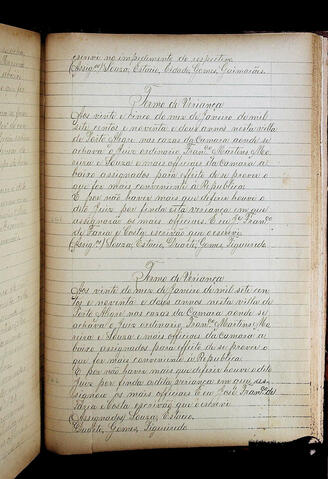 escrivo no impedimento do respectivo
(Assig.os) Souza, Estacio, Cidade, Gomes, Guimarães.
Termo de Veriança
Aos vinte e cinco do mez de Janeiro de mil
sete centos e noventa e dous annos nesta villa
de Porto Alegre nas cazas da Camara aonde se
achava o Juiz ordenario Fran.co Martins Mo
reira e Souza e mais officiaes da Camara a
baixo assignados para effeito de se prover o
que for mais conveniente á Republica.
E por não haver mais que deferir houve o
dito Juiz por finda esta veriança em que
assignarão os mais officiaes. E eu José Fran.co
de Faria e Costa escrivão que o escrevi
(Assig.os) Souza, Estacio, Duarte, Gomes, Figueiredo
Termo de Veriança
Aos vinte do mez de Janeiro de mil sete cen
tos e noventa e dous annos nesta villa de
Porto Alegre nas cazas da Camara aonde se
achava o Juiz ordenario, Fran.co Martins Mo
reira e Souza e mais officiaes da Camara a
baixo assignados para effeito de se prover o
que for mais conveniente á Republica.
E por não haver mais que deferir houve o dito
Juiz por finda a dita veriança em que as
signou os mais officiaes E eu José Fran.co de
Faria e Costa escrivão que o escrevi
(Assignados) Souza, Estacio,
Duarte, Gomes, Figueiredo